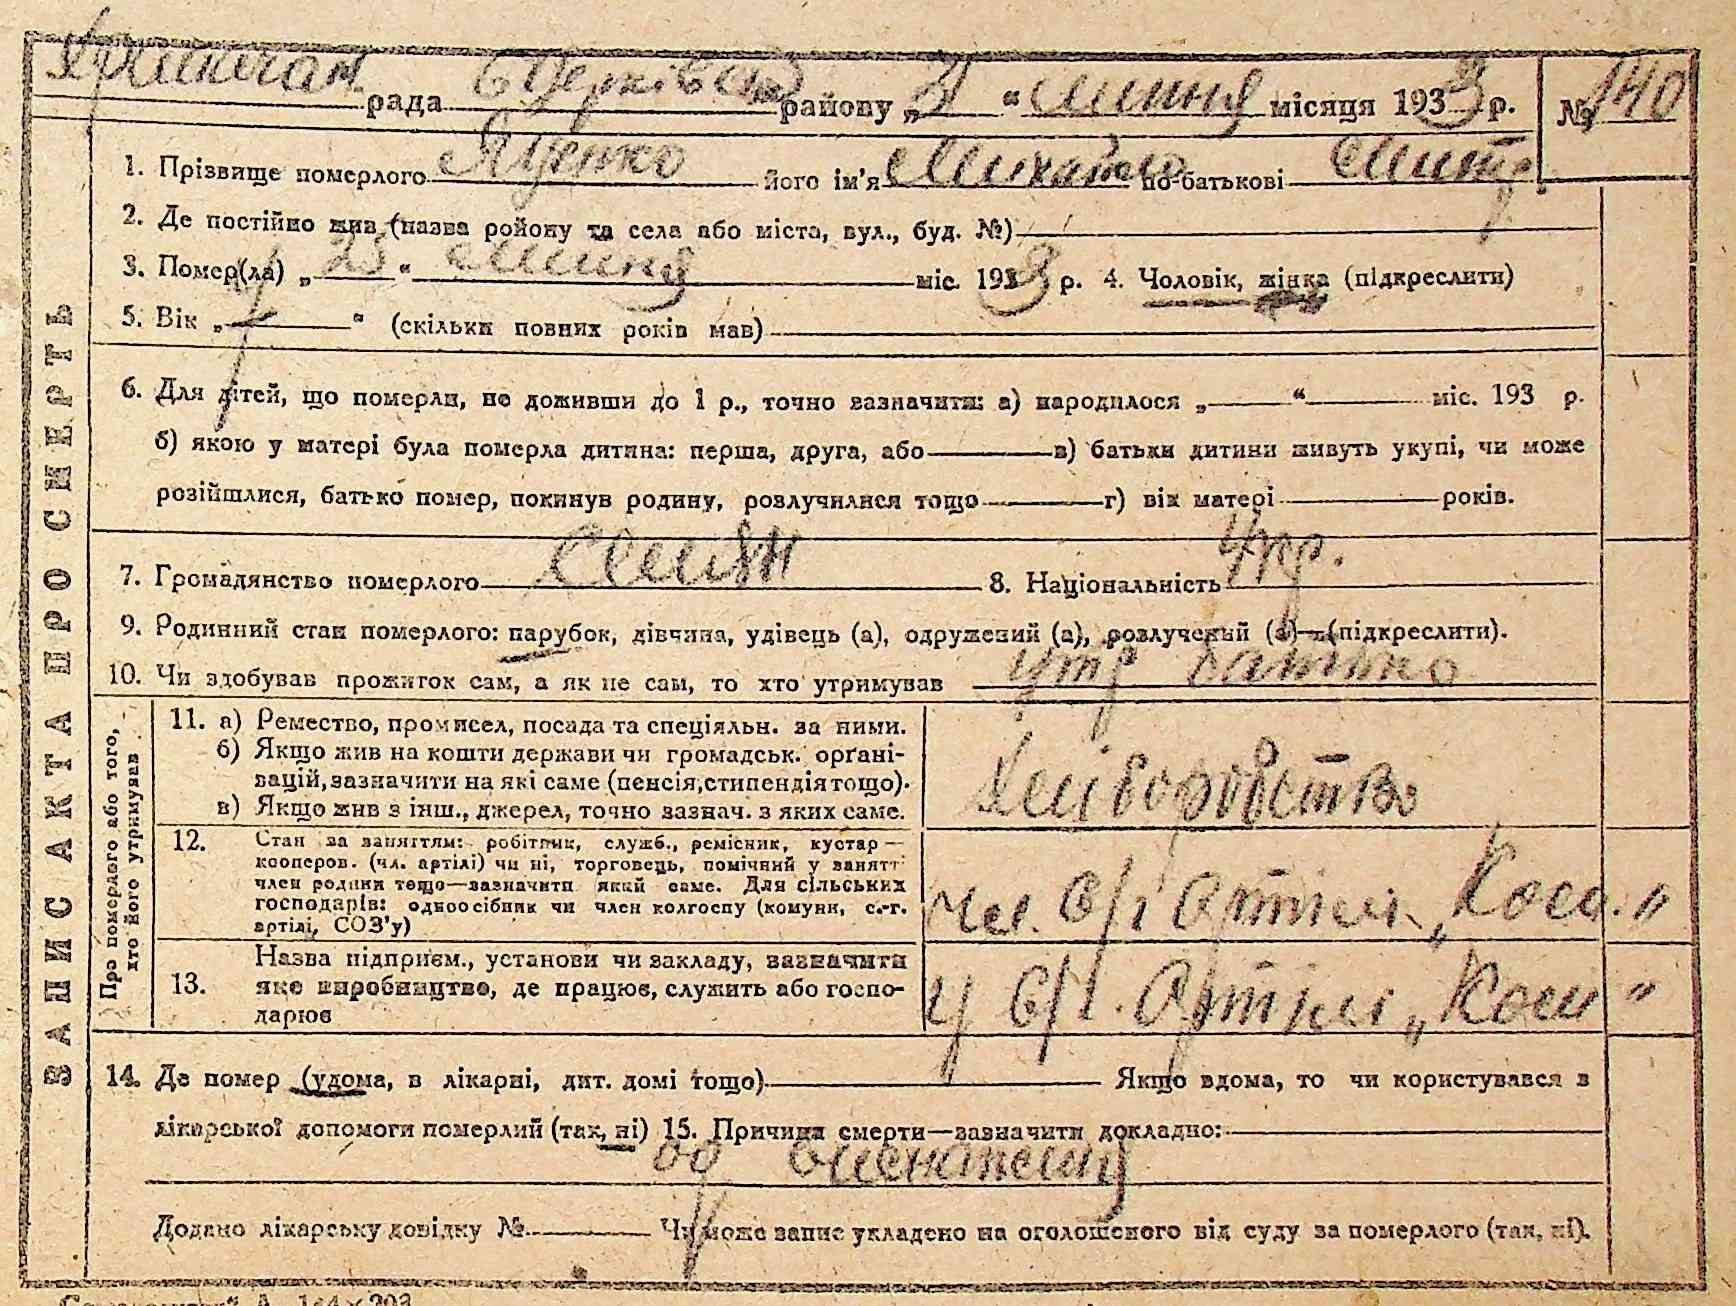 рада района „ “ липня місяця 1933 р. № 140
1. Прізвище померлого Яценко його ім'я Михайло по-батькові Дмитр
2. Де постійно жив (назва району та села або міста, вул., буд. №)
3. Помер(ла) „25“ липня міс. 1933 р. 4. Чоловік, жінка (підкреслити)
5. Вік „7“ (скільки повних років мав)
6. Для дітей, що померли, не доживши до 1 р., точно зазначити: а) народилося „ “ міс. 193 р.
б) якою у матері була померла дитина: перша, друга, або в) батьки дитини живуть укупі, чи може
розійшлися, батько помер, покинув родину, розлучилися тощо г) вік матері років.
7. Громадянство померлого 8. Національність Укр.
9. Родинний стан померлого: парубок, дівчина, удівець (а), одружений (а), розлучений (а)—(підкреслити).
10. Чи здобував прожиток сам, а як не сам, то хто утримував утр батько
ЗАПИС АКТА ПРО СМЕРТЬ
Про померлого або того, хто його утримував
11. а) Ремество, промисел, посада та спеціяльн. за ними.
б) Якщо жив на кошти держави чи громадськ. орґані-
зацій, зазначити на які саме (пенсія, стипендія тощо).
в) Якщо жив з інш., джерел, точно зазнач. з яких саме.
Хліборобство
12. Стан за заняттям: робітник, служб., ремісник, кустар—
кооперов. (чл. артілі) чи ні, торговець, помічний у занятт
член родини тощо—зазначити який саме. Для сільських
господарів: одноосібник чи член колгоспу (комуни, с.-г.
артілі, СОЗ'у)
Чл. с/г Артілі
13. Назва підприєм., установи чи закладу, зазначити
яке виробництво, де працює, служить або госпо-
дарює
у с/г. Артілі
14. Де помер (удома, в лікарні, дит. домі тощо) Якщо вдома, то чи користувався з
лікарської допомоги померлий (так, ні) 15. Причина смерти—зазначити докладно:
од виснаження
Додано лікарську довідку № Чи може запис укладено на оголошеного від суду за померлого (так, ні).